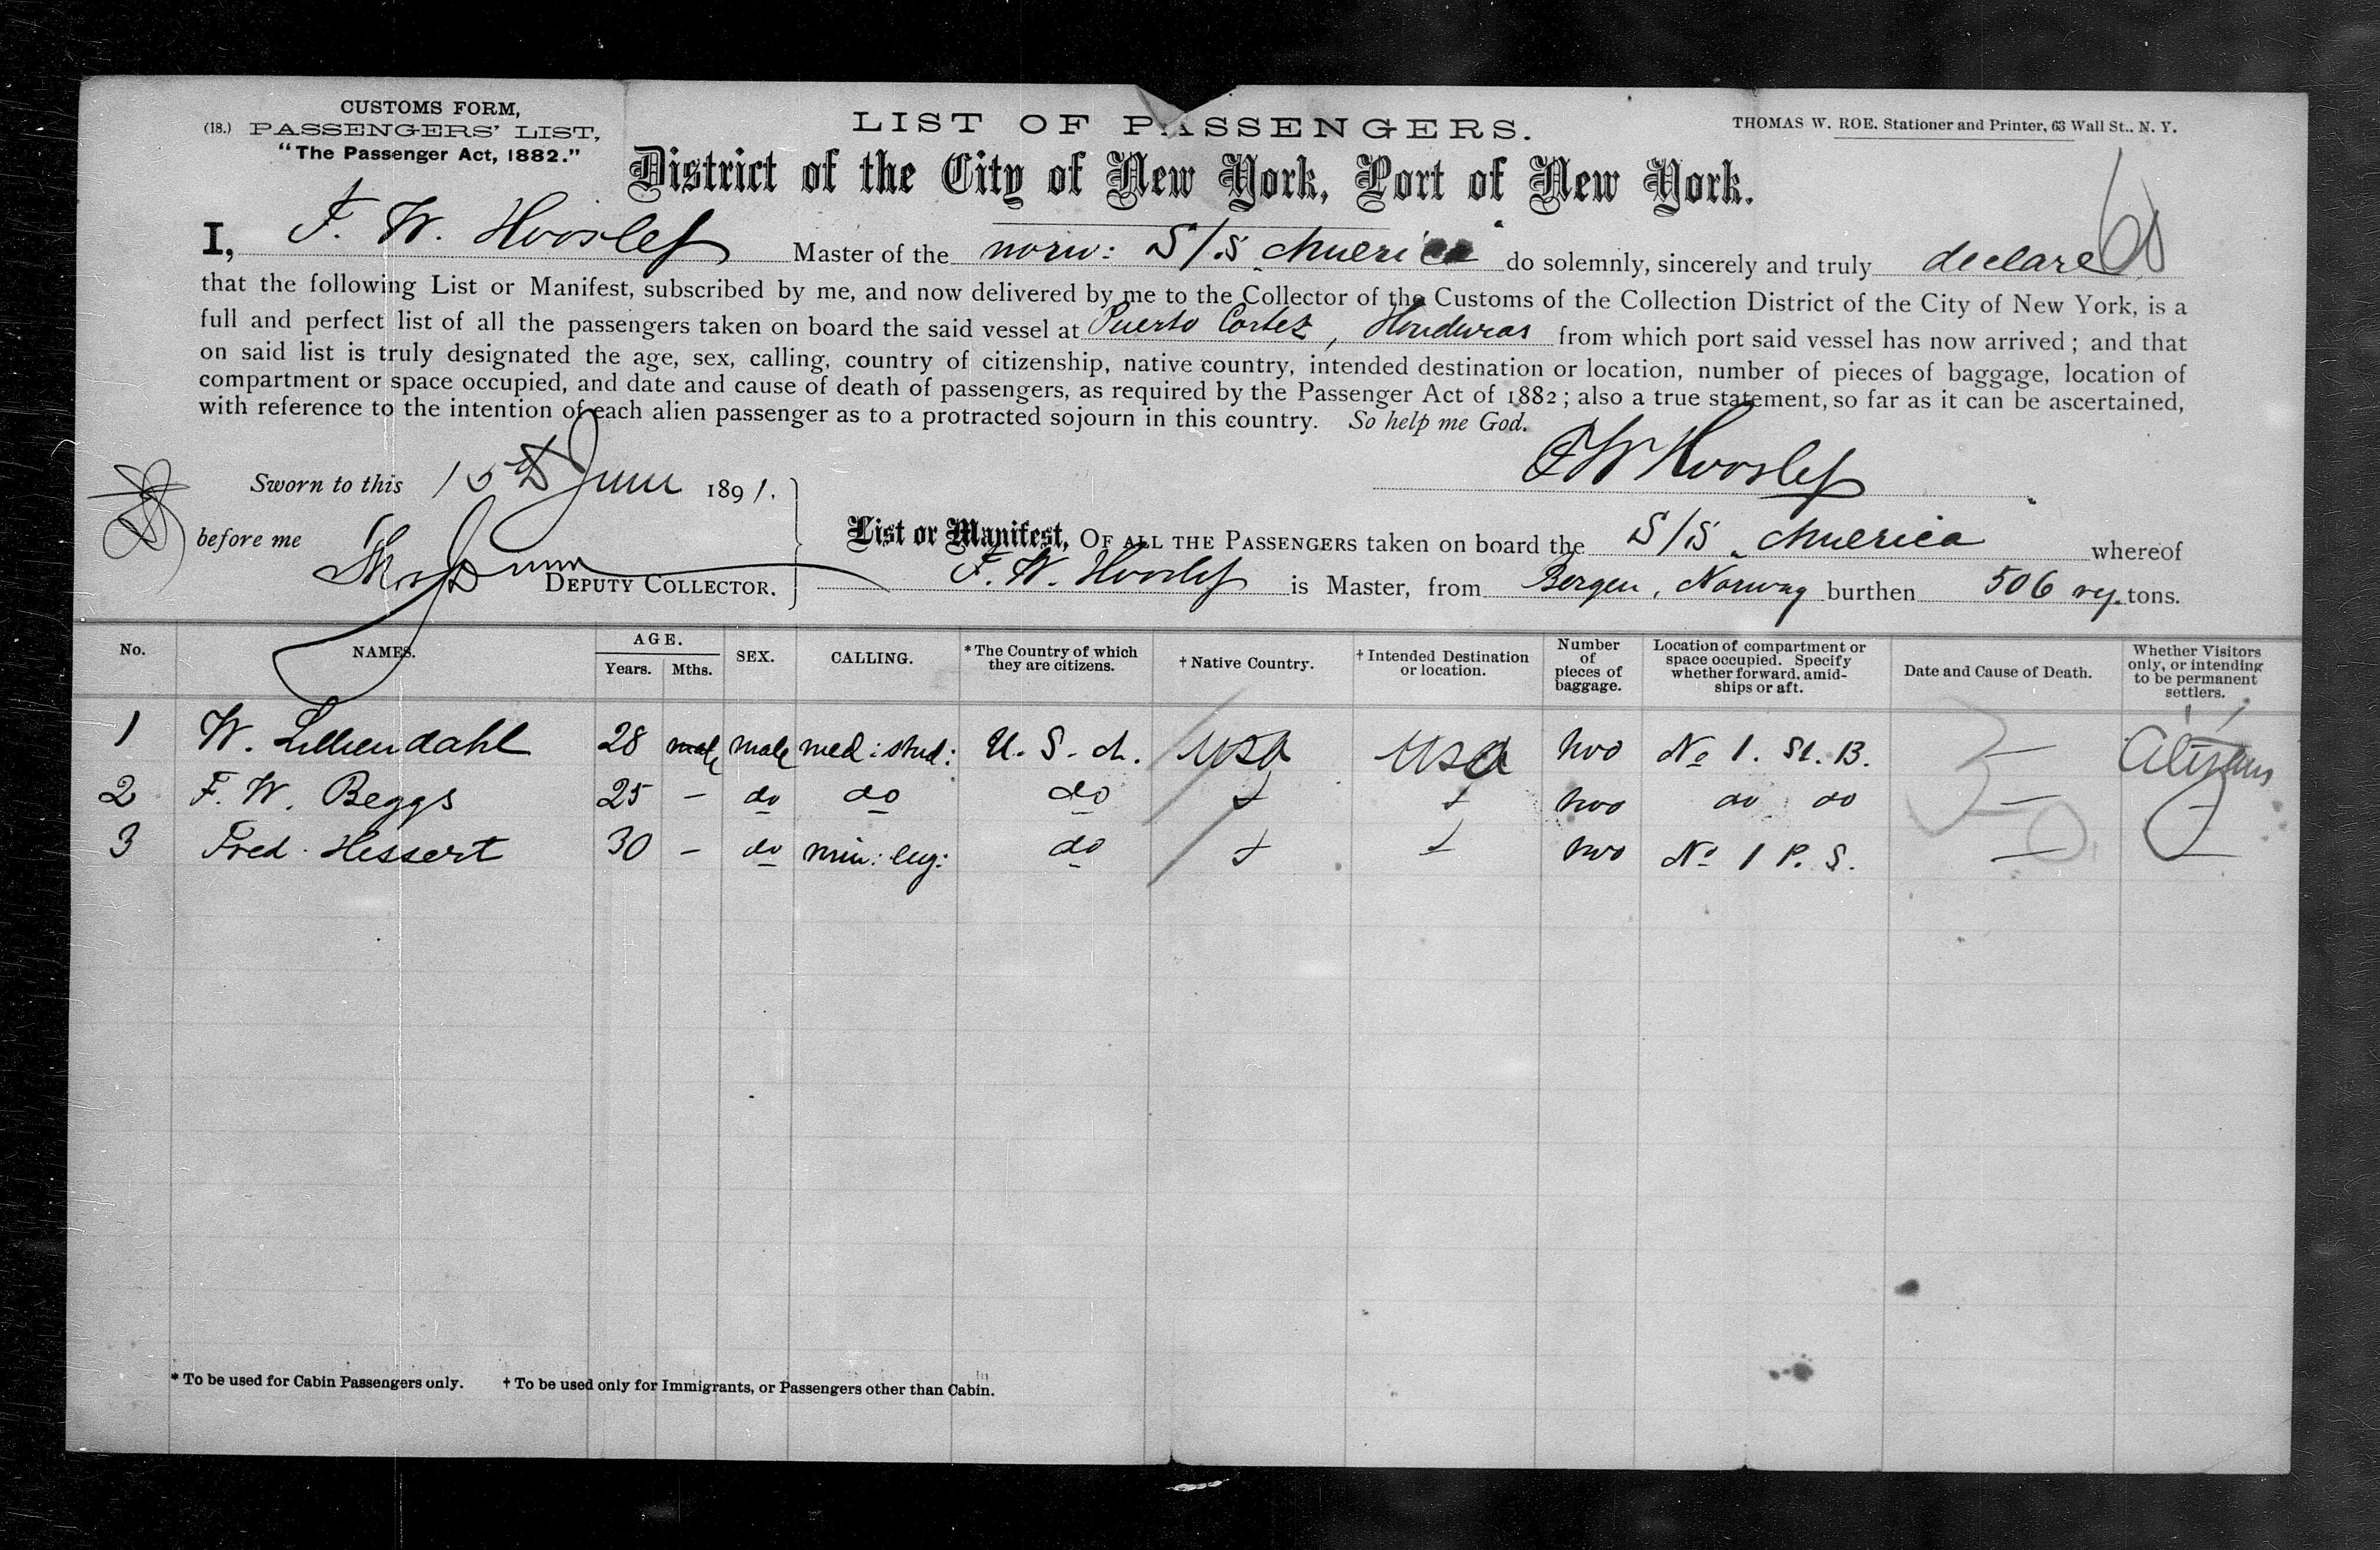 CUSTOMS FORM,
(18.) PASSENGERS' LIST,
"The Passenger Act, 1882."
LIST OF PASSENGERS.
THOMAS W. ROE, Stationer and Printer, 63 Wall St., N. Y.
District of the City of New York, Port of New York.
I, F. W. Hvoslef Master of the norw: S/S America do solemnly, sincerely and truly declare
that the following List or Manifest, subscribed by me, and now delivered by me to the Collector of the Customs of the Collection District of the City of New York, is a
full and perfect list of all the passengers taken on board the said vessel at Puerto Cortez, Honduras from which port said vessel has now arrived; and that
on said list is truly designated the age, sex, calling, country of citizenship, native country, intended destination or location, number of pieces of baggage, location of
compartment or space occupied, and date and cause of death of passengers, as required by the Passenger Act of 1882; also a true statement, so far as it can be ascertained,
with reference to the intention of each alien passenger as to a protracted sojourn in this country. So help me God.
FW Hvoslef
Sworn to this 15th June 1891.
before me
DEPUTY COLLECTOR.
List or Manifest, OF ALL THE PASSENGERS taken on board the S/S America whereof
F. W. Hvoslef is Master, from Bergen, Norway burthen 506 rg. tons.
No. NAMES. AGE. Years. Mths. SEX. CALLING. *The Country of which they are citizens. †Native Country. †Intended Destination or location. Number of pieces of baggage. Location of compartment or space occupied. Specify whether forward, amidships or aft. Date and Cause of Death. Whether Visitors only, or intending to be permanent settlers.
1 W. Lilliendahl 28 male male med: stud: U. S. A. USA USA two No 1. St. B. — Citizens
2 F. W. Beggs 25 — do do do + + two do do — —
3 Fred. Hessert 30 — do min: eng: do + + two No 1 P. S. — —
* To be used for Cabin Passengers only. † To be used only for Immigrants, or Passengers other than Cabin.